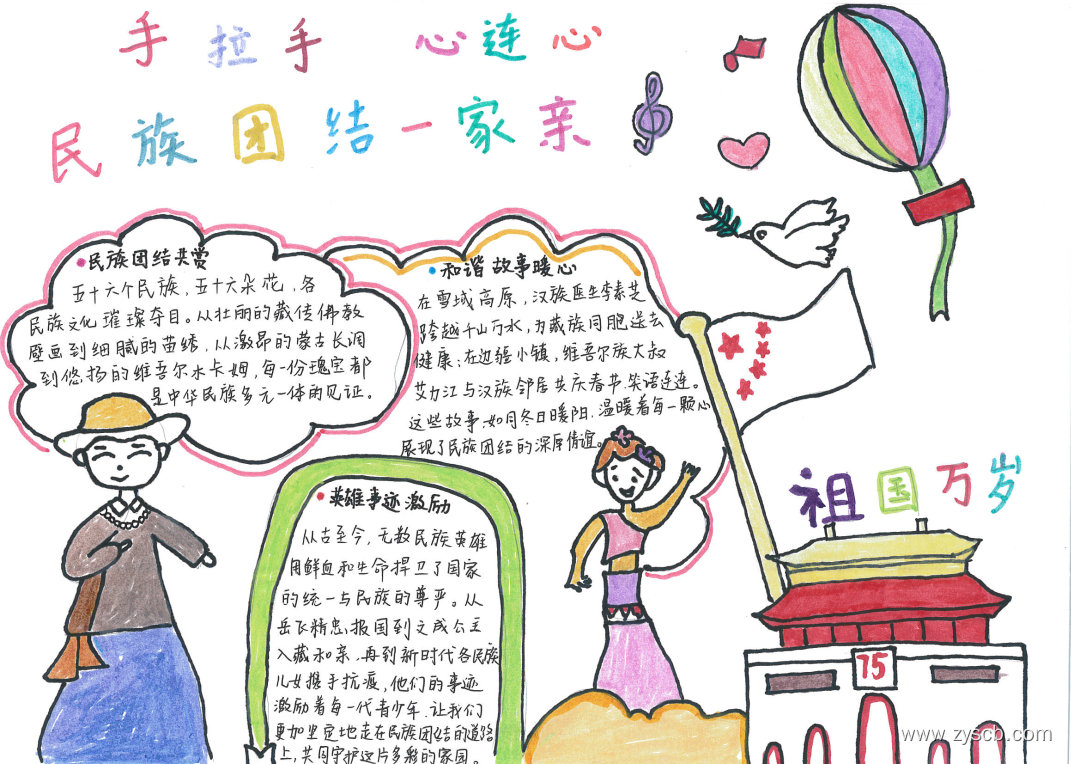 手拉手 心连心
民族团结一家亲
民族团结共赏
五十六个民族，五十六朵花，各
民族文化璀璨夺目。从壮丽的藏传佛教
壁画到细腻的苗绣，从激昂的蒙古长调
到悠扬的维吾尔木卡姆，每一份瑰宝都
是中华民族多元一体的见证。
和谐故事暖心
在雪域高原，汉族医生李素芝
跨越千山万水，为藏族同胞送去
健康；在边疆小镇，维吾尔族大叔
艾力江与汉族邻居共庆春节，笑语连连。
这些故事如同冬日暖阳，温暖着每一颗心
展现了民族团结的深厚情谊。
英雄事迹激励
从古至今，无数民族英雄
用鲜血和生命捍卫了国家
的统一与民族的尊严。从
岳飞精忠报国到文成公主
入藏和亲，再到新时代各民族
儿女携手抗疫，他们的事迹
激励着每一代青少年，让我们
更加坚定地走在民族团结的道路
上，共同守护这片多彩的家园。
祖国万岁
75
www.zyscb.com